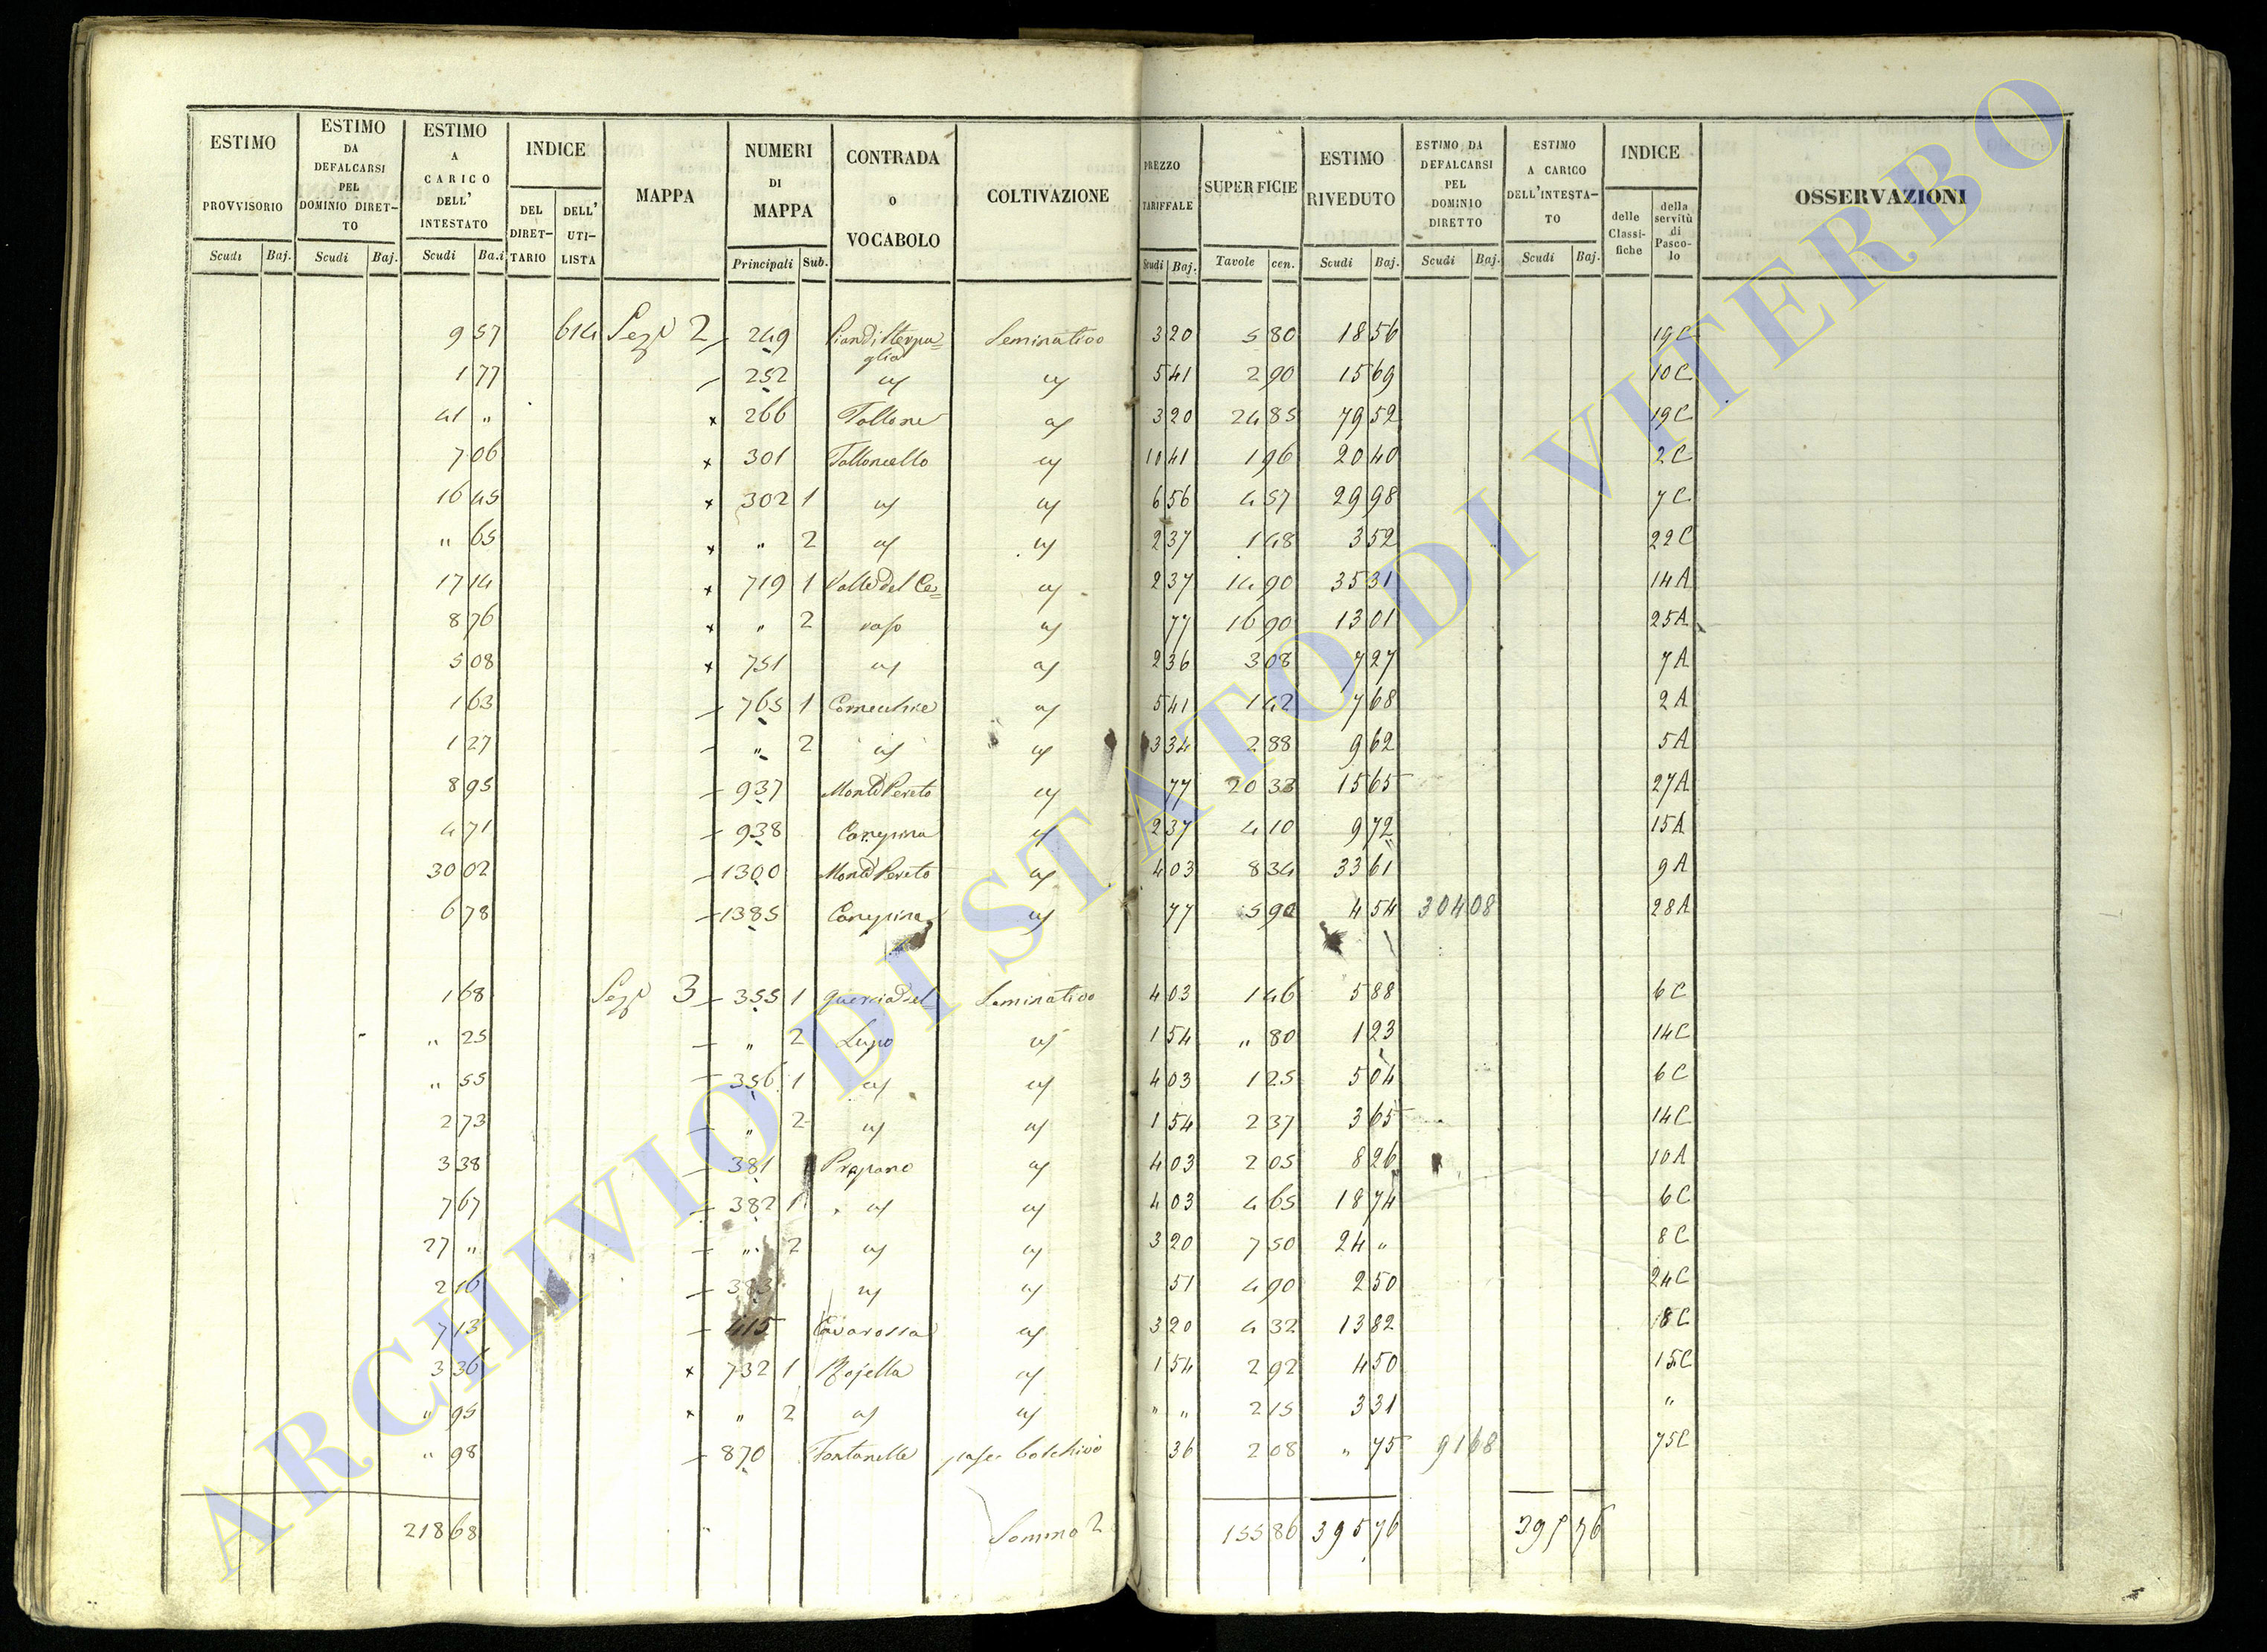 ESTIMO PROVVISORIO Scudi Baj. | ESTIMO DA DEFALCARSI PEL DOMINIO DIRETTO Scudi Baj. | ESTIMO A CARICO DELL' INTESTATO Scudi Ba.i | INDICE DEL DIRETTARIO DELL' UTILISTA | MAPPA | NUMERI DI MAPPA Principali Sub. | CONTRADA O VOCABOLO | COLTIVAZIONE | PREZZO TARIFFALE Scudi Baj. | SUPERFICIE Tavole cen. | ESTIMO RIVEDUTO Scudi Baj. | ESTIMO DA DEFALCARSI PEL DOMINIO DIRETTO Scudi Baj. | ESTIMO A CARICO DELL'INTESTATO Scudi Baj. | INDICE delle Classifiche della servitù di Pascolo | OSSERVAZIONI
9 57 614 Sez.e 2 249 Pian di Sterpaglia Seminativo 3 20 5 80 18 56 19C
1 77 252 " " 5 41 2 90 15 69 10C
41 " x 266 Tallone " 3 20 24 85 79 52 19C
7 06 x 301 Talloncello " 10 41 1 96 20 40 2C
16 45 x 302 1 " " 6 56 4 57 29 98 7C
" 65 x " 2 " " 2 37 1 48 3 52 22C
17 14 x 719 1 Valle del Ce= " 2 37 14 90 35 31 14A
8 76 x " 2 raso " 77 16 90 13 01 25A
5 08 x 751 " " 2 36 3 08 7 27 7A
1 63 765 1 " 5 41 1 42 7 68 2A
1 27 " 2 " " 3 34 2 88 9 62 5A
8 95 937 Monte Pereto " 77 20 33 15 65 27A
4 71 938 " 2 37 4 10 9 72 15A
30 02 1300 Monte Pereto " 4 03 8 34 33 61 9A
6 78 1385 " 77 5 90 4 54 304 08 28A
1 68 Sez.e 3 355 1 Quercia del Seminativo 4 03 1 46 5 88 6C
" 25 " 2 Lupo " 1 54 " 80 1 23 14C
" 55 356 1 " " 4 03 1 25 5 04 6C
2 73 " 2 " " 1 54 2 37 3 65 14C
3 38 381 " 4 03 2 05 8 26 10A
7 67 382 1 " " 4 03 4 65 18 74 6C
27 " " 2 " " 3 20 7 50 24 " 8C
2 16 383 " " 51 4 90 2 50 24C
7 13 415 Cavarossa " 3 20 4 32 13 82 8C
3 36 x 732 1 Rojella " 1 54 2 92 4 50 15C
" 95 x " 2 " " " " 2 15 3 31 "
" 98 870 Fontanelle 36 2 08 " 75 91 68 75C
218 68 Somma 2 155 86 395 76 395 76
ARCHIVIO DI STATO DI VITERBO